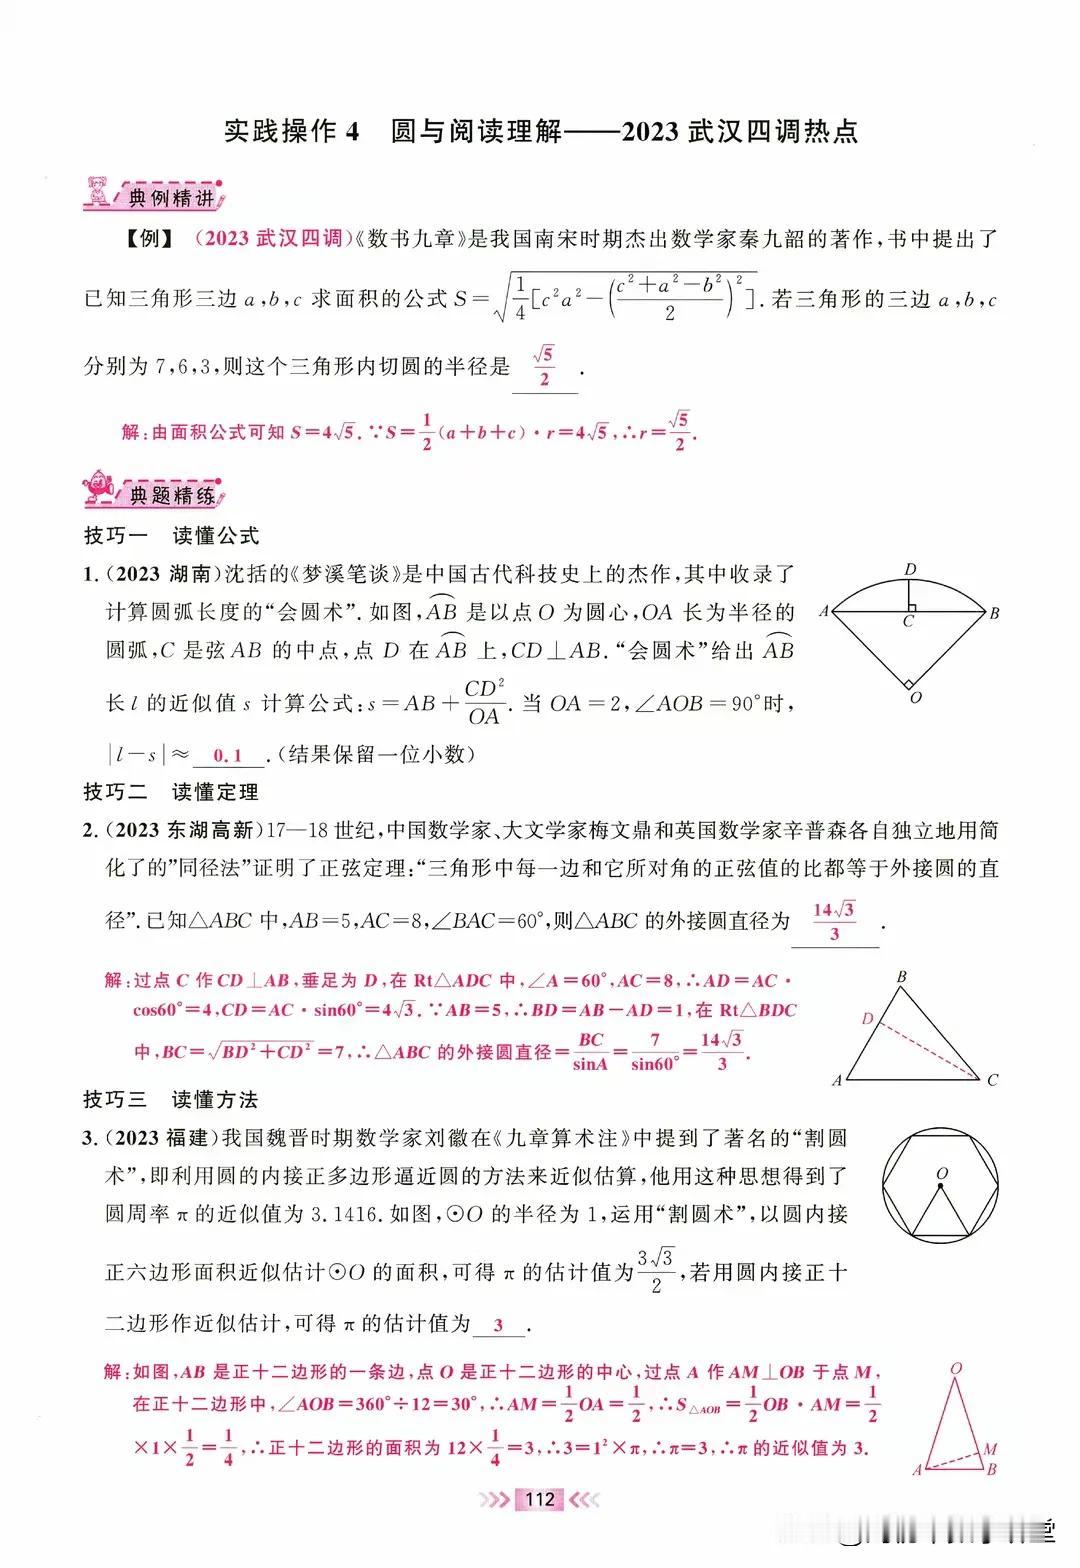 实践操作 4 圆与阅读理解——2023 武汉四调热点
典例精讲
【例】 (2023 武汉四调)《数书九章》是我国南宋时期杰出数学家秦九韶的著作,书中提出了
已知三角形三边 a,b,c 求面积的公式 S=√(1/4[c²a²-((c²+a²-b²)/2)²]). 若三角形的三边 a,b,c
分别为 7,6,3,则这个三角形内切圆的半径是 √5/2 .
解:由面积公式可知 S=4√5. ∵S=1/2(a+b+c)·r=4√5,∴r=√5/2.
典题精练
技巧一 读懂公式
1. (2023 湖南)沈括的《梦溪笔谈》是中国古代科技史上的杰作,其中收录了
计算圆弧长度的“会圆术”. 如图,⌒AB 是以点 O 为圆心,OA 长为半径的
圆弧,C 是弦 AB 的中点,点 D 在 ⌒AB 上,CD⊥AB. “会圆术”给出 ⌒AB
长 l 的近似值 s 计算公式:s=AB+CD²/OA. 当 OA=2,∠AOB=90°时,
|l-s|≈ 0.1 .(结果保留一位小数)
D
A
C
B
O
技巧二 读懂定理
2. (2023 东湖高新)17—18 世纪,中国数学家、大文学家梅文鼎和英国数学家辛普森各自独立地用简
化了的”同径法”证明了正弦定理:“三角形中每一边和它所对角的正弦值的比都等于外接圆的直
径”. 已知△ABC 中,AB=5,AC=8,∠BAC=60°,则△ABC 的外接圆直径为 14√3/3 .
解:过点 C 作 CD⊥AB,垂足为 D,在 Rt△ADC 中,∠A=60°,AC=8,∴AD=AC·
cos60°=4,CD=AC·sin60°=4√3. ∵AB=5,∴BD=AB-AD=1,在 Rt△BDC
中,BC=√(BD²+CD²)=7,∴△ABC 的外接圆直径=BC/sinA=7/sin60°=14√3/3.
B
D
A
C
技巧三 读懂方法
3. (2023 福建)我国魏晋时期数学家刘徽在《九章算术注》中提到了著名的“割圆
术”,即利用圆的内接正多边形逼近圆的方法来近似估算,他用这种思想得到了
圆周率 π 的近似值为 3.1416. 如图,⊙O 的半径为 1,运用“割圆术”,以圆内接
正六边形面积近似估计⊙O 的面积,可得 π 的估计值为3√3/2,若用圆内接正十
二边形作近似估计,可得 π 的估计值为 3 .
O
解:如图,AB 是正十二边形的一条边,点 O 是正十二边形的中心,过点 A 作 AM⊥OB 于点 M,
在正十二边形中,∠AOB=360°÷12=30°,∴AM=1/2OA=1/2,∴S△AOB=1/2OB·AM=1/2
×1×1/2=1/4,∴正十二边形的面积为 12×1/4=3,∴3=1²×π,∴π=3,∴π 的近似值为 3.
O
M
A
B
112